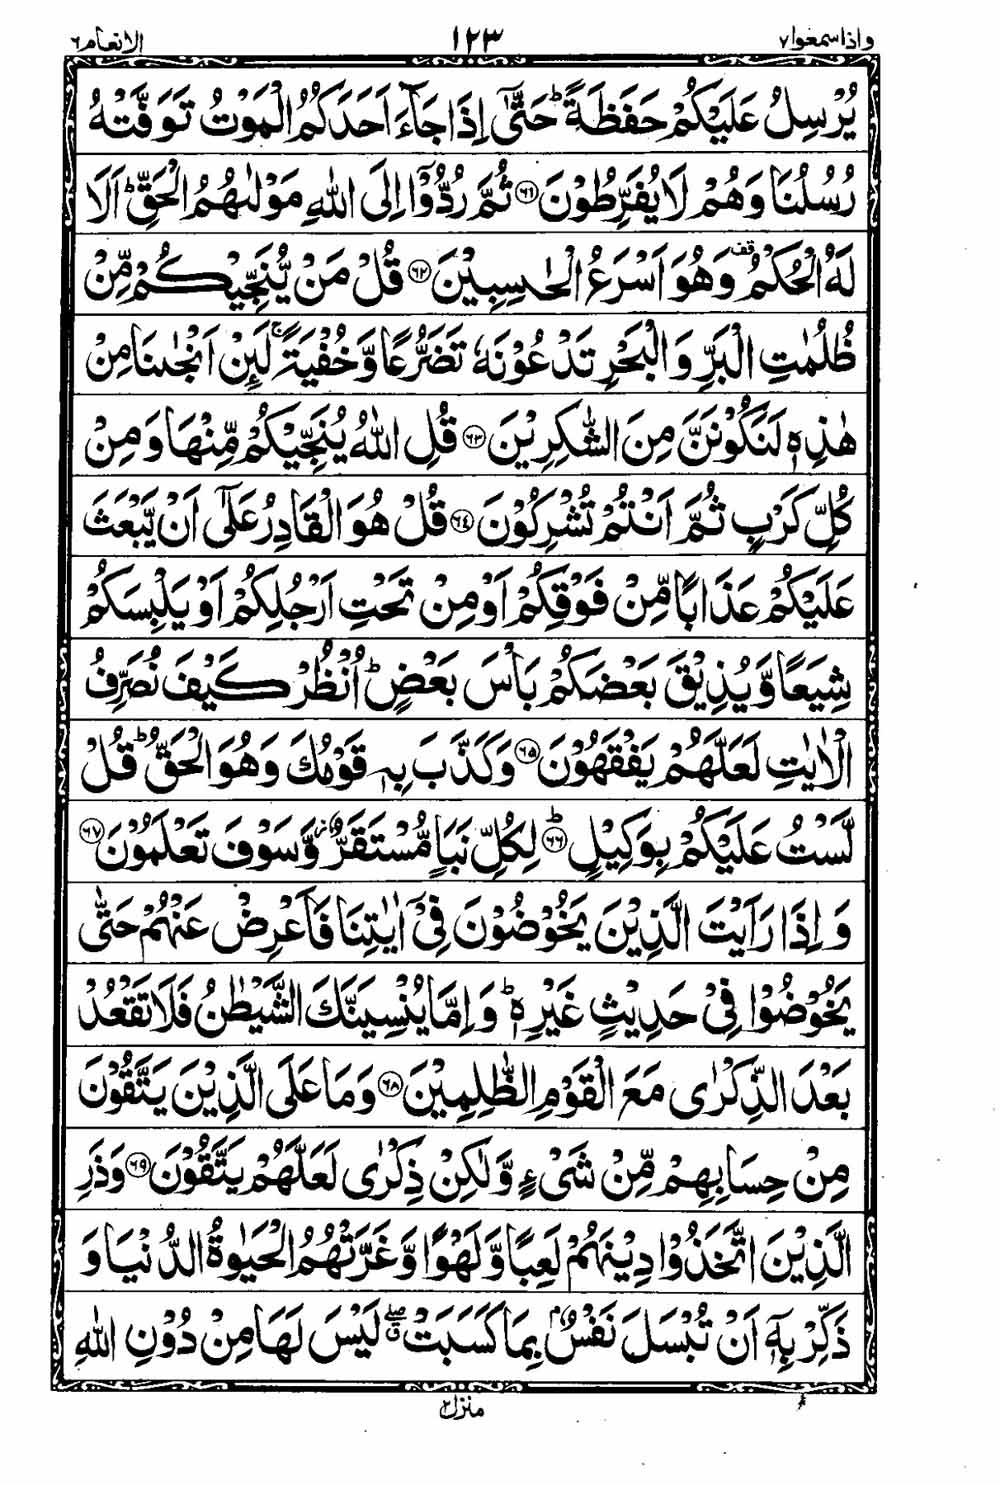 واذا سمعوا ٧ ١٢٣ الانعام ٦
يُرْسِلُ عَلَيْكُمْ حَفَظَةً ؕ حَتّٰۤی اِذَا جَآءَ اَحَدَكُمُ الْمَوْتُ تَوَفَّتْهُ
رُسُلُنَا وَهُمْ لَا يُفَرِّطُوْنَ ﴿٦١﴾ ثُمَّ رُدُّوْۤا اِلَى اللّٰهِ مَوْلٰىهُمُ الْحَقِّ ؕ اَلَا
لَهُ الْحُكْمُ ۟ وَهُوَ اَسْرَعُ الْحٰسِبِيْنَ ﴿٦٢﴾ قُلْ مَنْ يُّنَجِّيْكُمْ مِّنْ
ظُلُمٰتِ الْبَرِّ وَالْبَحْرِ تَدْعُوْنَهٗ تَضَرُّعًا وَّخُفْيَةً ۚ لَئِنْ اَنْجٰىنَا مِنْ
هٰذِهٖ لَنَكُوْنَنَّ مِنَ الشّٰكِرِيْنَ ﴿٦٣﴾ قُلِ اللّٰهُ يُنَجِّيْكُمْ مِّنْهَا وَمِنْ
كُلِّ كَرْبٍ ثُمَّ اَنْتُمْ تُشْرِكُوْنَ ﴿٦٤﴾ قُلْ هُوَ الْقَادِرُ عَلٰۤی اَنْ يَّبْعَثَ
عَلَيْكُمْ عَذَابًا مِّنْ فَوْقِكُمْ اَوْ مِنْ تَحْتِ اَرْجُلِكُمْ اَوْ يَلْبِسَكُمْ
شِيَعًا وَّيُذِيْقَ بَعْضَكُمْ بَاْسَ بَعْضٍ ؕ اُنْظُرْ كَيْفَ نُصَرِّفُ
الْاٰيٰتِ لَعَلَّهُمْ يَفْقَهُوْنَ ﴿٦٥﴾ وَكَذَّبَ بِهٖ قَوْمُكَ وَهُوَ الْحَقُّ ؕ قُلْ
لَّسْتُ عَلَيْكُمْ بِوَكِيْلٍ ﴿٦٦﴾ؕ لِكُلِّ نَبَاٍ مُّسْتَقَرٌّ ز وَّسَوْفَ تَعْلَمُوْنَ ﴿٦٧﴾
وَاِذَا رَاَيْتَ الَّذِيْنَ يَخُوْضُوْنَ فِيْۤ اٰيٰتِنَا فَاَعْرِضْ عَنْهُمْ حَتّٰى
يَخُوْضُوْا فِيْ حَدِيْثٍ غَيْرِهٖ ؕ وَاِمَّا يُنْسِيَنَّكَ الشَّيْطٰنُ فَلَا تَقْعُدْ
بَعْدَ الذِّكْرٰى مَعَ الْقَوْمِ الظّٰلِمِيْنَ ﴿٦٨﴾ وَمَا عَلَى الَّذِيْنَ يَتَّقُوْنَ
مِنْ حِسَابِهِمْ مِّنْ شَيْءٍ وَّلٰكِنْ ذِكْرٰى لَعَلَّهُمْ يَتَّقُوْنَ ﴿٦٩﴾ وَذَرِ
الَّذِيْنَ اتَّخَذُوْا دِيْنَهُمْ لَعِبًا وَّلَهْوًا وَّغَرَّتْهُمُ الْحَيٰوةُ الدُّنْيَا وَ
ذَكِّرْ بِهٖۤ اَنْ تُبْسَلَ نَفْسٌۢ بِمَا كَسَبَتْ ۖ ق لَيْسَ لَهَا مِنْ دُوْنِ اللّٰهِ
منزل ٢